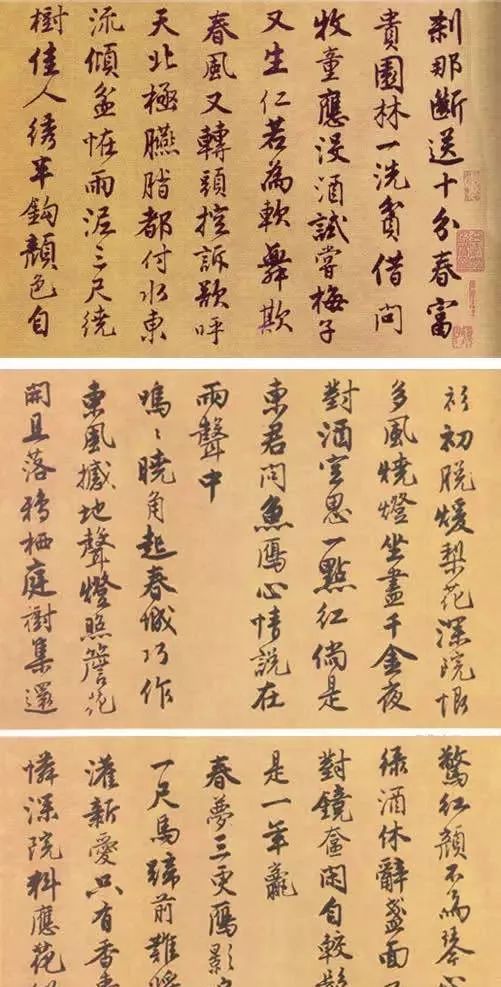 刹那斷送十分春富
貴園林一洗貧借問
牧童應沒酒試嘗梅子
又生仁若為軟舞欺
春風又轉頭控訴欲呼
天北極臙脂都付水東
流傾盆怪雨泥三尺繞
樹佳人繡半鈎顏色自
衫初脫煖梨花深院恨
多風燒燈坐盡千金夜
對酒空思一點紅倘是
東君問魚鴈心情說在
雨聲中
嗚〻曉角起春城巧作
東風撼地聲燈照簷花
開且落鴉栖庭樹集還
驚紅顏不為琴心
綠酒休辭盞面
對鏡奩閑自較鬢
是一年虧
春夢三更鴈影
一尺馬蹄前難將
灌新愛只有香
憐深院料應花